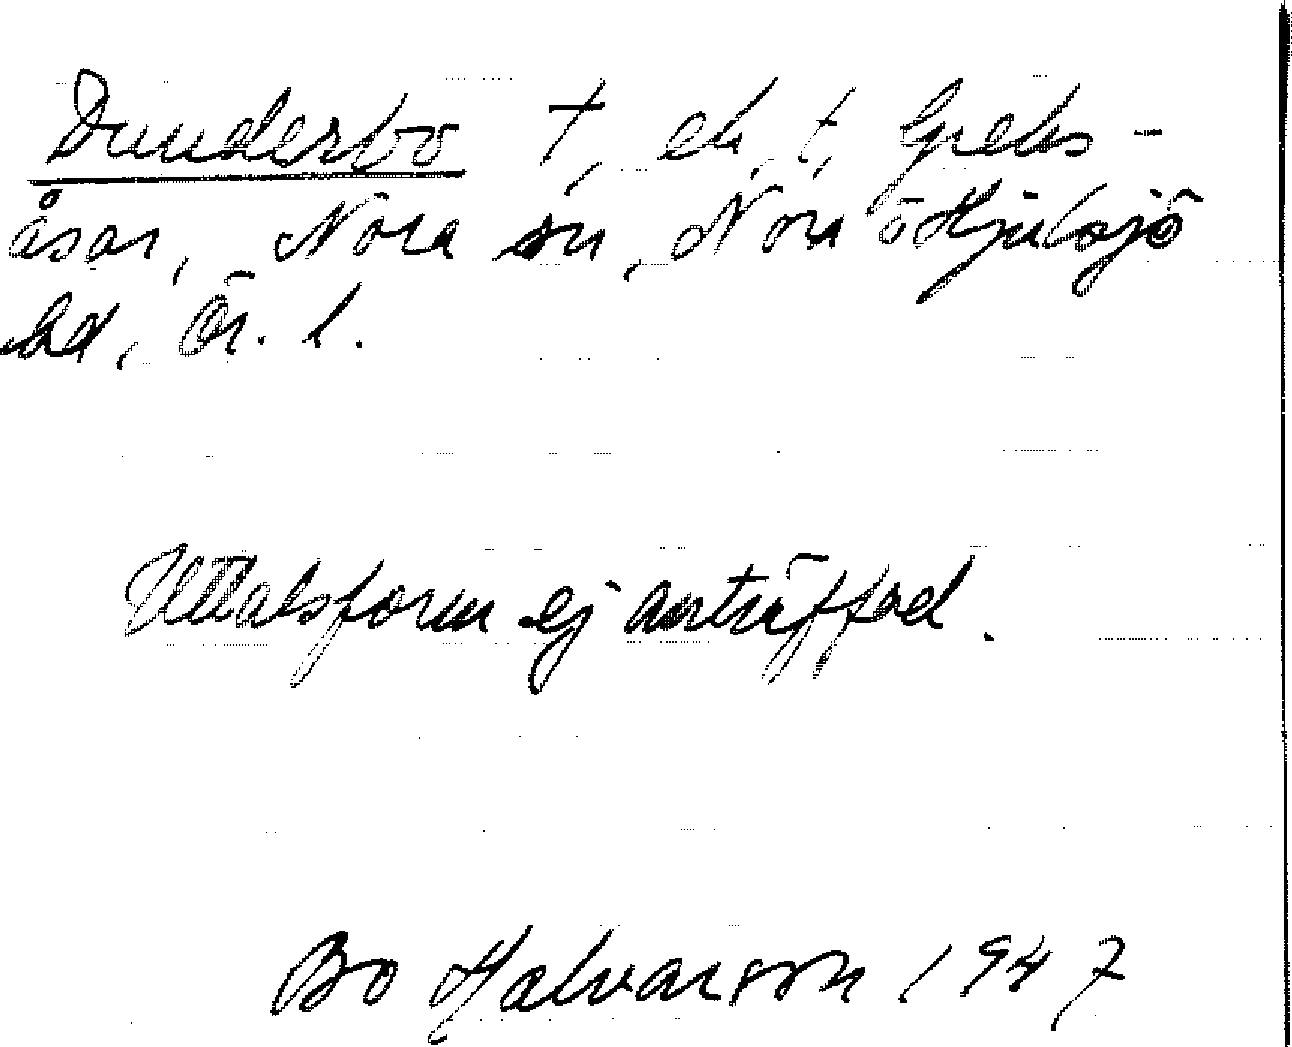 Dunderbo †, eh. t. Greks-
åsar, Nora sn, Nora o Hjulsjö
hd, Ör. l.
Uttalsform ej anträffad.
Bo Halvarson 1947